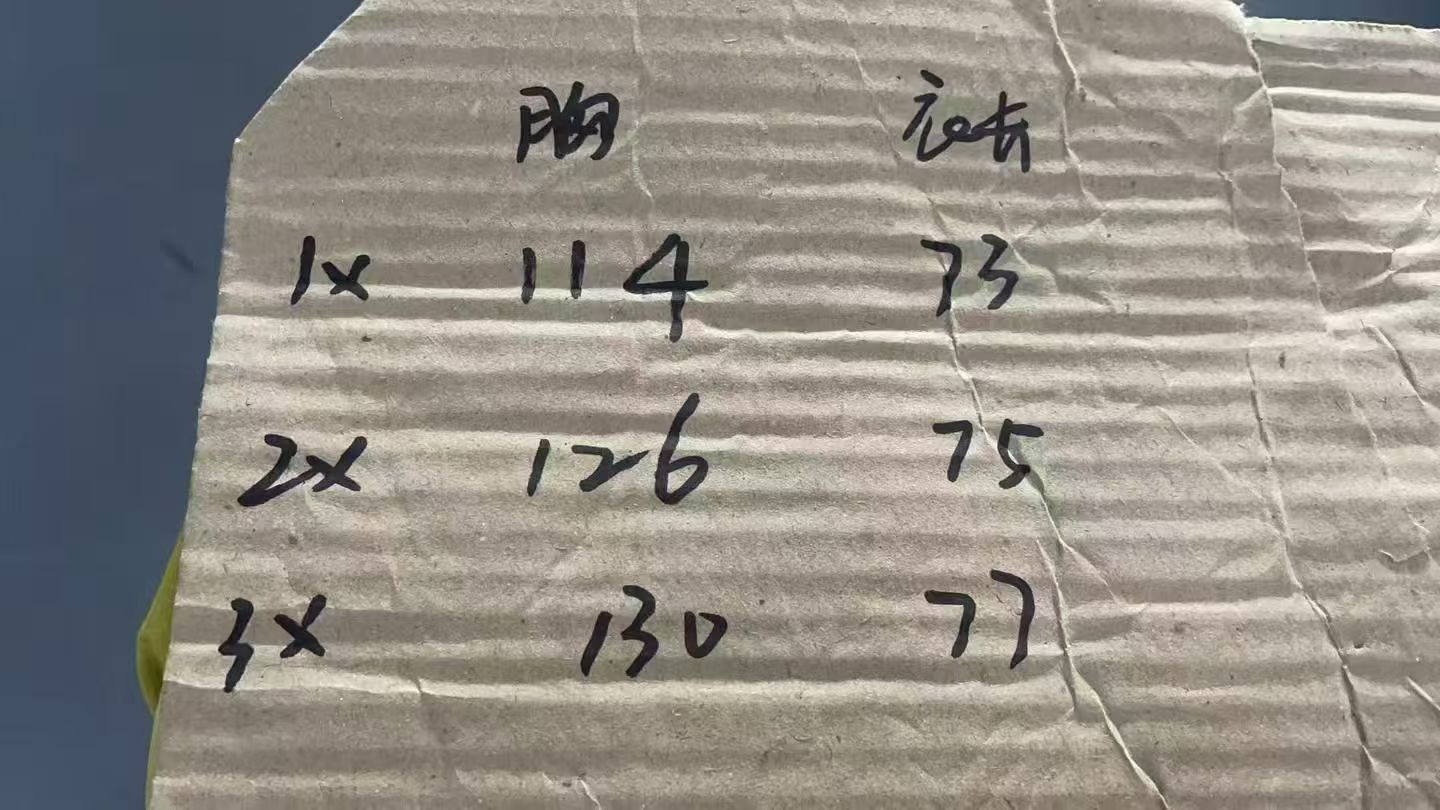 胸 衣长
1x 114 73
2x 126 75
3x 130 77